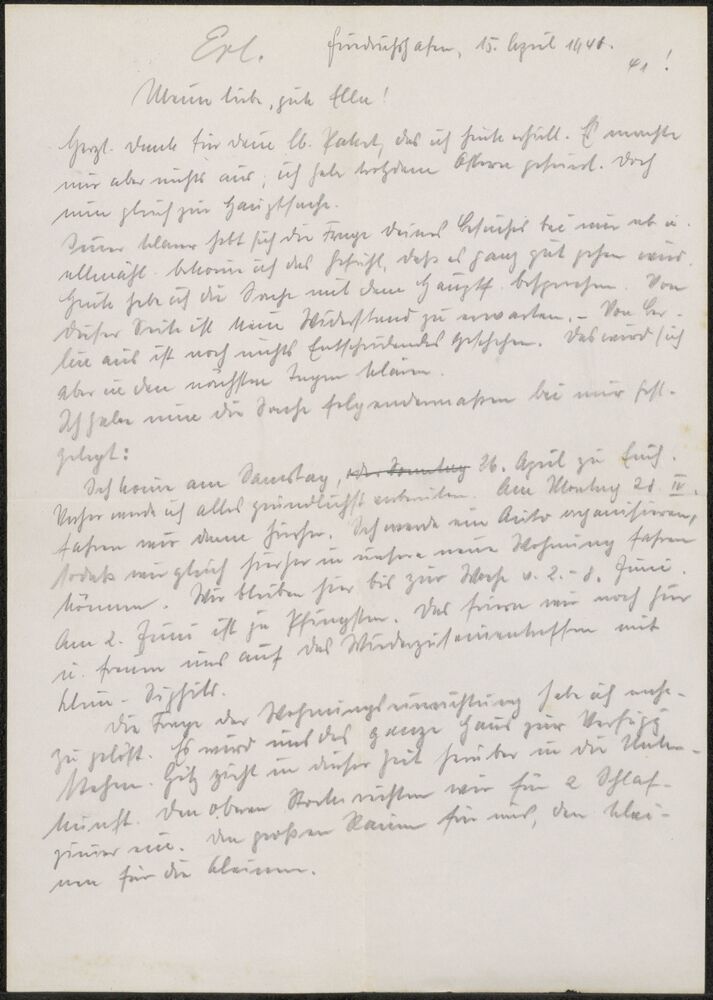 Erl.
Friedrichshafen, 15. April 1940.
41!
Meine liebe, gute Elle!
Herzl. Dank für Deine lb. Paket, das ich heute erhielt. Es machte
mir aber nichts aus, ich habe trotzdem Ostern gefeiert. Doch
nun gleich zur Hauptsache.
Immer klarer hebt sich die Frage Deines Besuches bei mir ab u.
allmähl. bekomm ich das Gefühl, daß es ganz gut gehen wird.
Heute habe ich die Sache mit dem Hauptf. besprochen. Von
dieser Seite ist kein Widerstand zu erwarten. – Von Ber-
lin aus ist noch nichts Entscheidendes geschehen. Das wird sich
aber in den nächsten Tagen klären.
Ich habe nun die Sache folgendermaßen bei mir fest-
gelegt:
Ich komme am Samstag, oder Sonntag 26. April zu Euch.
Vorher werde ich alles gründlichst vorbereiten. Am Montag 28. IV.
fahren wir dann hierher. Ich werde ein Auto organisieren,
sodaß wir gleich hierher in unsere neue Wohnung fahren
können. Wir bleiben hier bis zur Woche v. 2. – 8. Juni.
Am 2. Juni ist ja Pfingsten. Das feiern wir noch hier
u. freuen uns auf das Wiederzusammentreffen mit
klein-Sighild.
Die Frage der Wohnungseinrichtung habe ich nahe-
zu gelöst. Es wird uns das ganze Haus zur Verfügg
stehen. Hitz zieht in dieser Zeit hinüber in die Unter-
kunft. Den oberen Stock richten wir für 2 Schlaf-
zimmer ein. Den großen Raum für uns, den klei-
nen für die Kleinen.